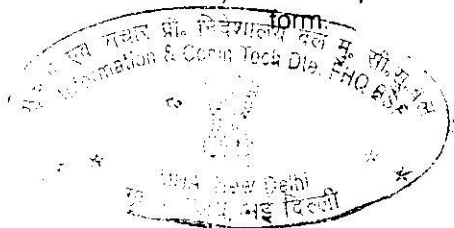 form.
एवं संचार प्रौ. निदेशालय बल मु. सी.सु.बल
Information & Comn Tech Dte, FHQ BSF
MHA New Delhi
नई दिल्ली